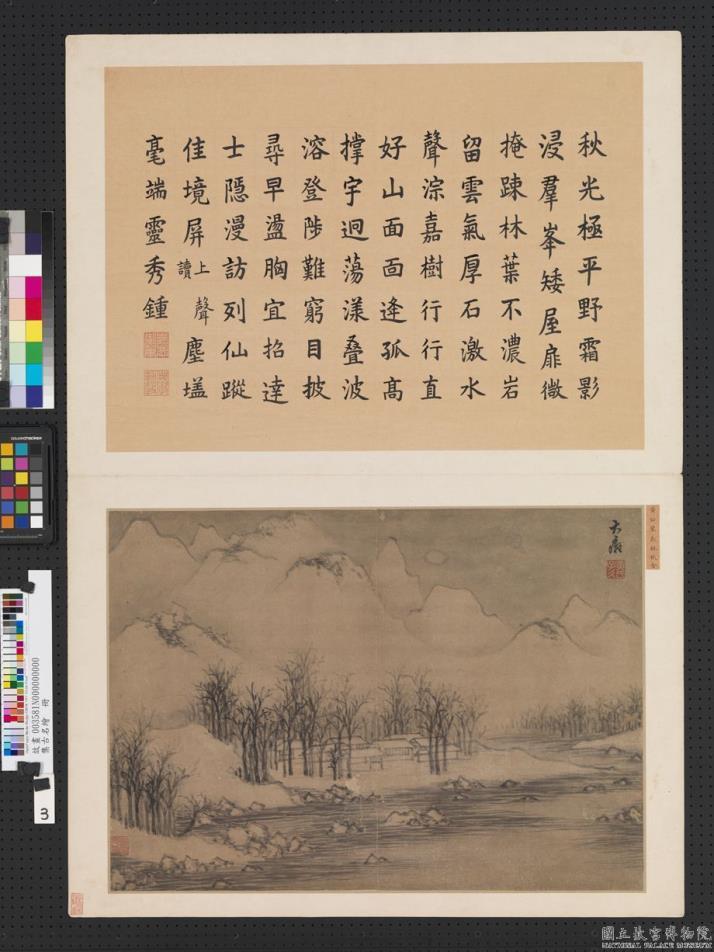 秋光極平野霜影
浸羣峯矮屋扉微
掩踈林葉不濃岩
留雲氣厚石激水
聲淙嘉樹行行直
好山面面逢孤高
撑宇迥蕩漾叠波
溶登陟難窮目披
尋早盪胸宜招達
士隱漫訪列仙蹤
佳境屏上聲讀塵壒
毫端靈秀鍾
大癡
故畫003581N000000000
集古名繪 冊
3
國立故宮博物院
NATIONAL PALACE MUSEUM